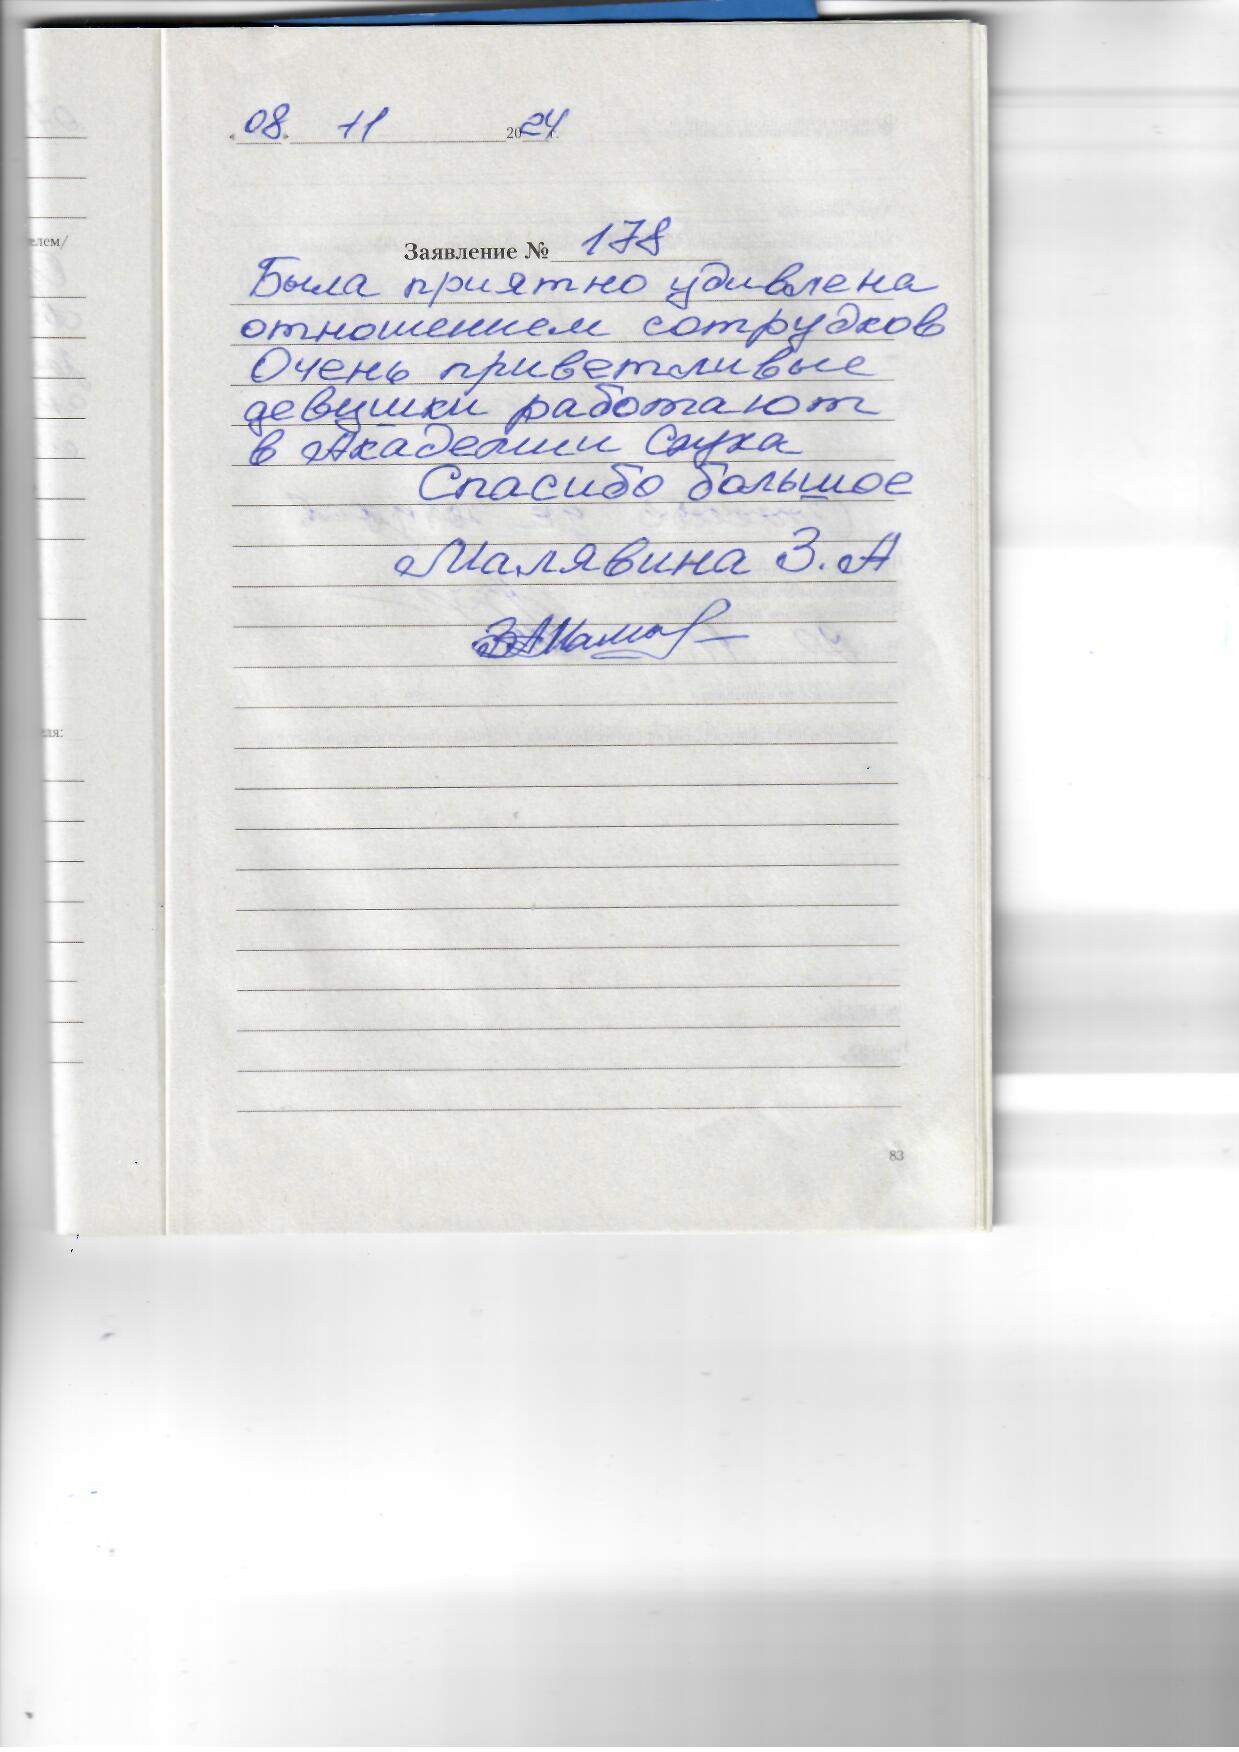 «08» 11 2024 г.
елем/
Заявление № 178
Была приятно удивлена
отношением сотрудков
Очень приветливые
девушки работают
в Академии Слуха
Спасибо большое
Малявина З.А
еля:
83